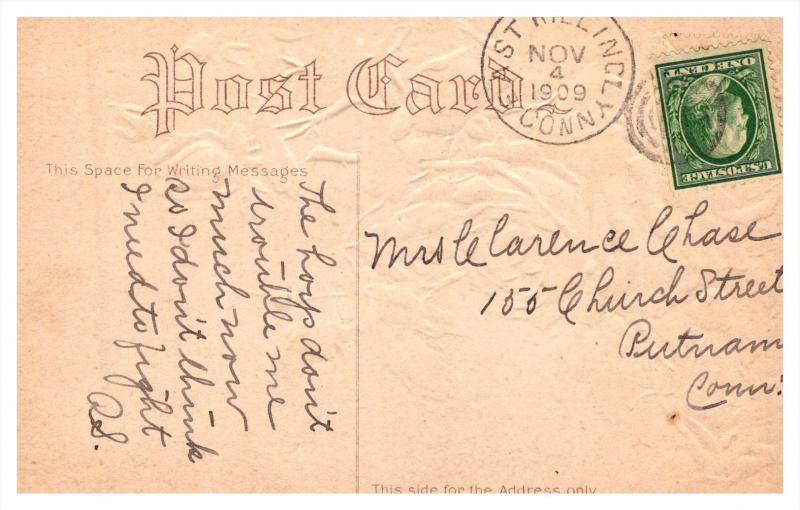 Post Card
EAST KILLINGLY
NOV
4
1909
CONN
ONE CENT
U.S. POSTAGE
This Space For Writing Messages
The boys don't
trouble me
much now
so I don't think
I need to fight
Mrs Clarence Chase
155 Church Street
Putnam
Conn.
This side for the Address only